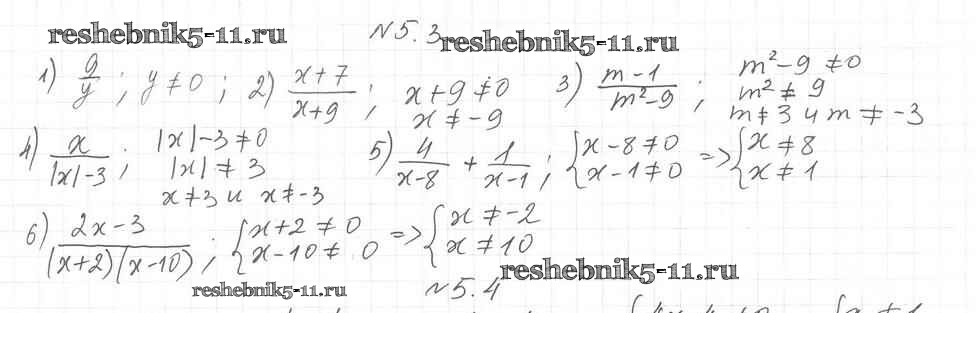 reshebnik5-11.ru
№5.3
reshebnik5-11.ru
1) 9/y ; y ≠ 0 ; 2) (x+7)/(x+9) ; x+9 ≠ 0
x ≠ -9
3) (m-1)/(m²-9) ; m²-9 ≠ 0
m² ≠ 9
m ≠ 3 и m ≠ -3
4) x/(|x|-3) ; |x|-3 ≠ 0
|x| ≠ 3
x ≠ 3 и x ≠ -3
5) 4/(x-8) + 1/(x-1) ; { x-8 ≠ 0 => { x ≠ 8
x-1 ≠ 0 x ≠ 1
6) (2x-3)/((x+2)(x-10)) ; { x+2 ≠ 0 => { x ≠ -2
x-10 ≠ 0 x ≠ 10
reshebnik5-11.ru
reshebnik5-11.ru
№5.4